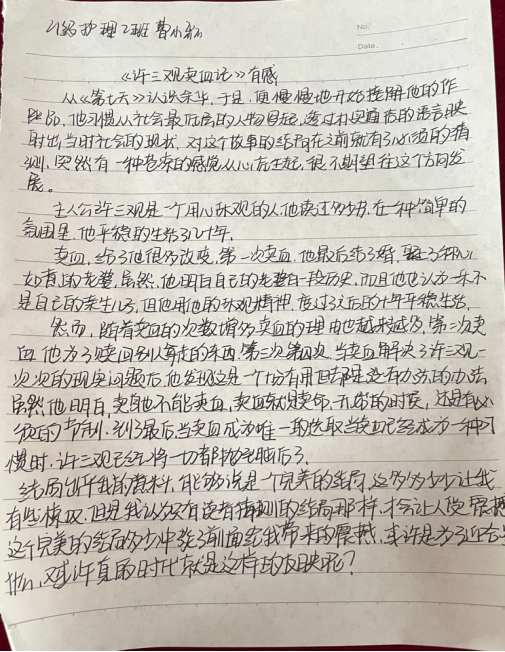 护理2班 曹
No.
Date.
《许三观卖血记》有感
从《第七天》认识余华,于是,便慢慢地开始接触他的作
品,他习惯从社会最底层的人物写起,透过朴实通俗的语言映
射出当时社会的现状,对这个故事的结局在之前就有了心酸的猜
测,突然有一种苍凉的感觉从心底生起,很不期望往这个方向发
展。
主人公许三观是一个用心乐观的人,他读过多少书,在一种简单的
氛围里,他平稳的生活了几十年。
卖血,给了他很多改变,第一次卖血,他最后结了婚,娶了
如意的老婆,虽然,他明白自己的老婆有一段历史,而且他也认为一乐不
是自己的亲生儿子,但他用他的乐观精神,度过了这后的十年平稳生活。
然而,随着卖血的次数增多,卖血的理由也越来越多,第二次卖
血他为了赎回别人拿走的东西,第三次第四次,当卖血解决了许三观一
次次的现实问题后,他发现这是一个十分有用但却是没有办法的办法
虽然他明白,卖身也不能卖血,卖血就是卖命,开始的时候,还是有必
须的节制,到了最后当卖血成为唯一的选取当卖血已经成为一种习
惯时,许三观已经将一切都抛在脑后了。
结局出乎我的意料,能够说是一个完美的结局,这多多少少让我
有些惊叹,但是我认为只有读者猜测的结局那样,才会让人觉震撼
这个完美的结局多少冲谈了前面给我带来的震撼,或许是为了迎合
或许真的时代就是这样的反映呢?